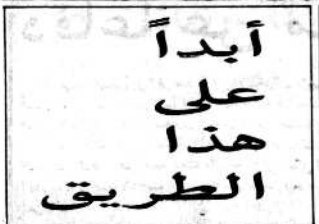 أبداً
على
هذا
الطريق